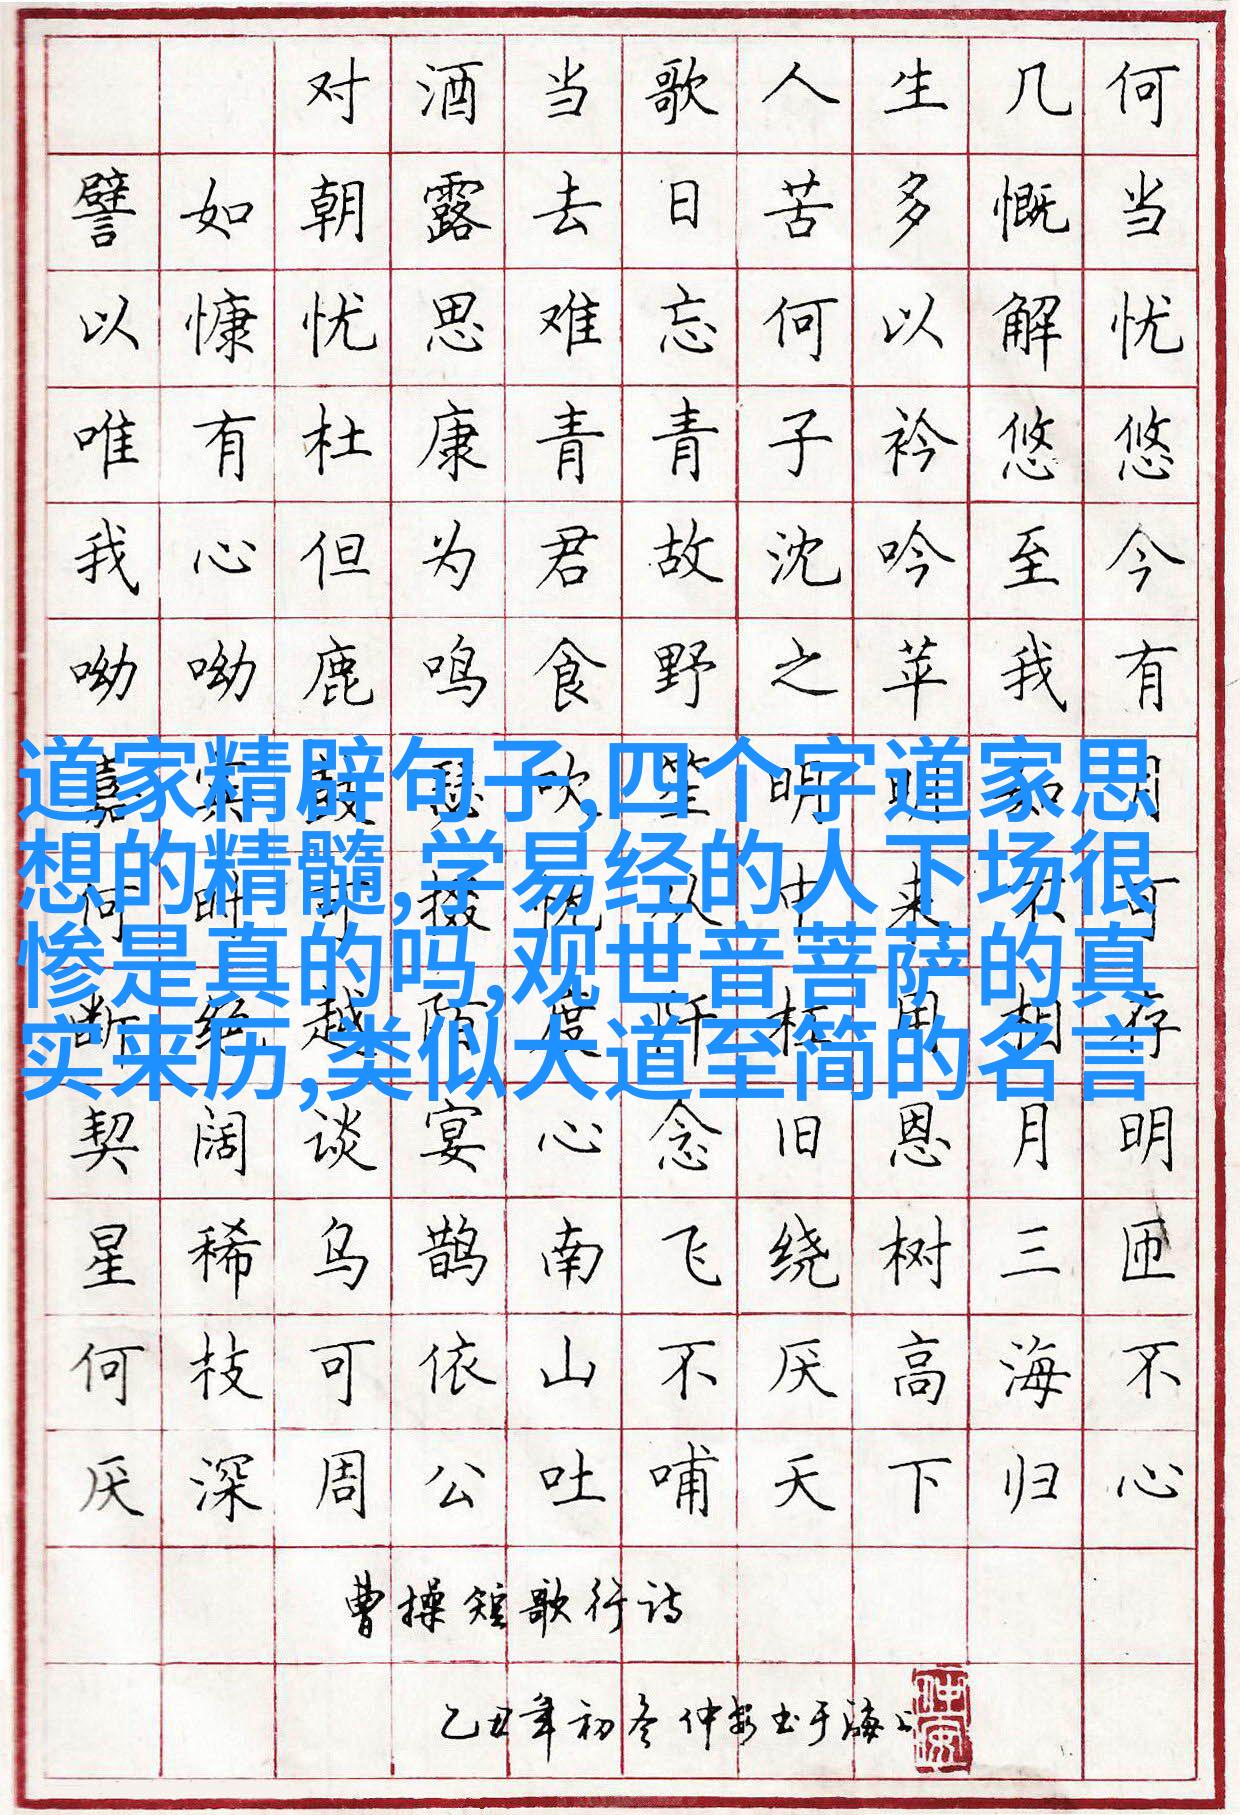 对酒当歌人生几何
譬如朝露去日苦多慨当
以慷忧思难忘何以解忧
唯有杜康青青子衿悠悠
我心但为君故沈吟至今
呦呦鹿鸣食野之苹我有
嘉宾鼓瑟吹笙明明如月
道家精辟句子,四个字道家思
何时可掇忧从中来不可
想的精髓,学易经的人下场很
惨是真的吗,观世音菩萨的真
断绝越陌度阡枉用相存
实来历,类似大道至简的名言
契阔谈宴心念旧恩月明
星稀乌鹊南飞绕树三匝
何枝可依山不厌高海不
厌深周公吐哺天下归心
曹操短歌行诗
乙丑年初冬仲安书于海上
仲安